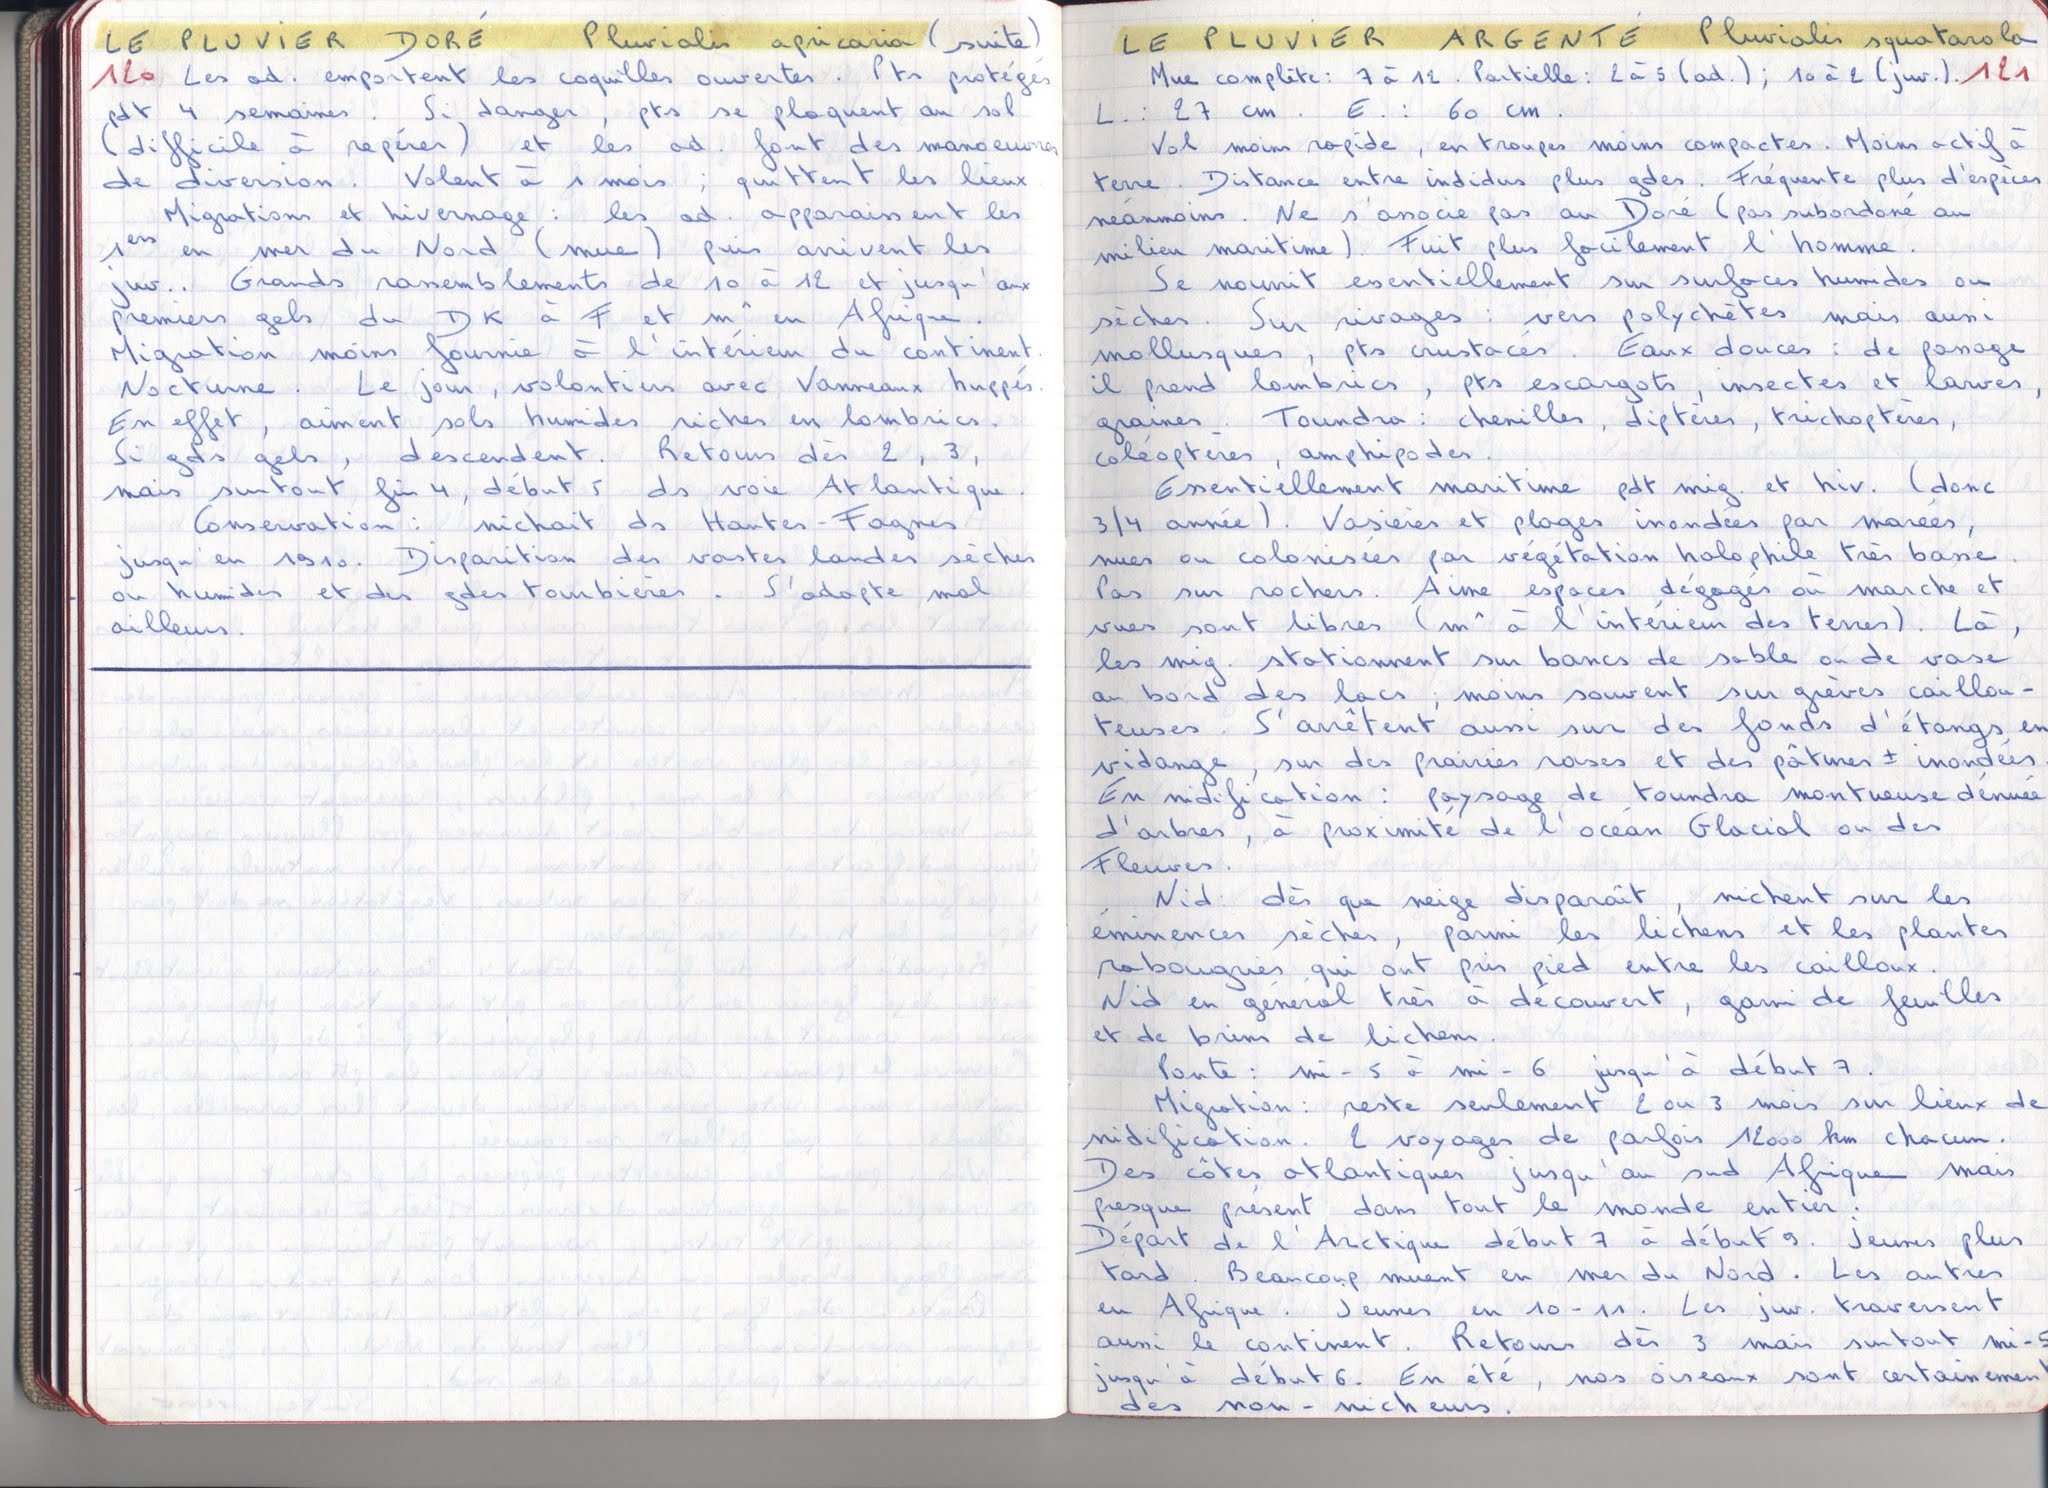 LE PLUVIER DORÉ Pluvialis apricaria (suite)
120 Les ad. emportent les coquilles ouvertes. Pts protégés
pdt 4 semaines. Si danger, pts se plaquent au sol
(difficile à repérer) et les ad. font des manoeuvres
de diversion. Volent à 1 mois ; quittent les lieux.
Migrations et hivernage : les ad. apparaissent les
1ers en mer du Nord (mue) puis arrivent les
juv.. Grands rassemblements de 10 à 12 et jusqu'aux
premiers gels du DK à F et m^ en Afrique.
Migration moins fournie à l'intérieur du continent.
Nocturne. Le jour, volontiers avec Vanneaux huppés.
En effet, aiment sols humides riches en lombrics.
Si gds gels, descendent. Retours dès 2, 3,
mais surtout fin 4, début 5 ds voie Atlantique.
Conservation : nichait ds Hautes-Fagnes
jusqu'en 1910. Disparition des vastes landes sèches
ou humides et des gdes tourbières. S'adapte mal
ailleurs.
LE PLUVIER ARGENTÉ Pluvialis squatarola
Mue complète : 7 à 12. Partielle : 2 à 5 (ad.) ; 10 à 2 (juv.). 121
L. : 27 cm. E. : 60 cm.
Vol moins rapide, en troupes moins compactes. Moins actif à
terre. Distance entre indidus plus gdes. Fréquente plus d'espèces
néanmoins. Ne s'associe pas au Doré (pas subordoné au
milieu maritime). Fuit plus facilement l'homme.
Se nourrit essentiellement sur surfaces humides ou
sèches. Sur rivages : vers polychètes mais aussi
mollusques, pts crustacés. Eaux douces : de passage
il prend lombrics, pts escargots, insectes et larves,
graines. Toundra : chenilles, diptères, trichoptères,
coléoptères, amphipodes.
Essentiellement maritime pdt mig. et hiv. (donc
3/4 année). Vasières et plages inondées par marées,
nues ou colonisées par végétation halophile très basse.
Pas sur rochers. Aime espaces dégagés où marche et
vues sont libres (m^ à l'intérieur des terres). Là,
les mig. stationnent sur bancs de sable ou de vase
au bord des lacs ; moins souvent sur grèves caillou-
teuses. S'arrêtent aussi sur des fonds d'étangs en
vidange, sur des prairies rases et des pâtures ± inondées.
En nidification : paysage de toundra montueuse dénuée
d'arbres, à proximité de l'océan Glacial ou des
Fleuves.
Nid : dès que neige disparaît, nichent sur les
éminences sèches, parmi les lichens et les plantes
rabougries qui ont pris pied entre les cailloux.
Nid en général très à découvert, garni de feuilles
et de brins de lichens.
Ponte : mi-5 à mi-6 jusqu'à début 7.
Migration : reste seulement 2 ou 3 mois sur lieux de
nidification. 2 voyages de parfois 12000 km chacun.
Des côtes atlantiques jusqu'au sud Afrique mais
presque présent dans tout le monde entier.
Départ de l'Arctique début 7 à début 9. Jeunes plus
tard. Beaucoup muent en mer du Nord. Les autres
en Afrique. Jeunes en 10-11. Les juv. traversent
aussi le continent. Retours dès 3 mais surtout mi-5
jusqu'à début 6. En été, nos oiseaux sont certainement
des non-nicheurs.